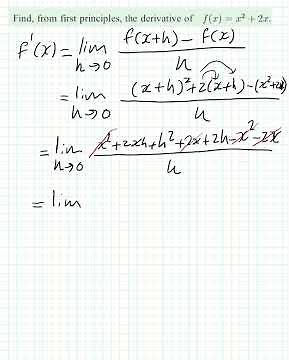 Find, from first principles, the derivative of f(x) = x² + 2x.
f'(x) = lim h→0 (f(x+h) − f(x))/h
= lim h→0 ((x+h)² + 2(x+h) − (x²+2x))/h
= lim h→0 (x² + 2xh + h² + 2x + 2h − x² − 2x)/h
= lim